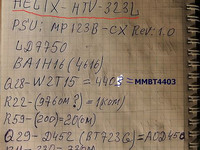 HELIX-HTV-323L
PSU: MP123B-CX Rev: 1.0
LD7750
BA1H16 (4616)
Q28-W2T15 = 4403 = MMBT4403
R22-(976ом)=1(ком)
R59-(200)=20(ом)
Q29-D452 (BT723G)=AOD450